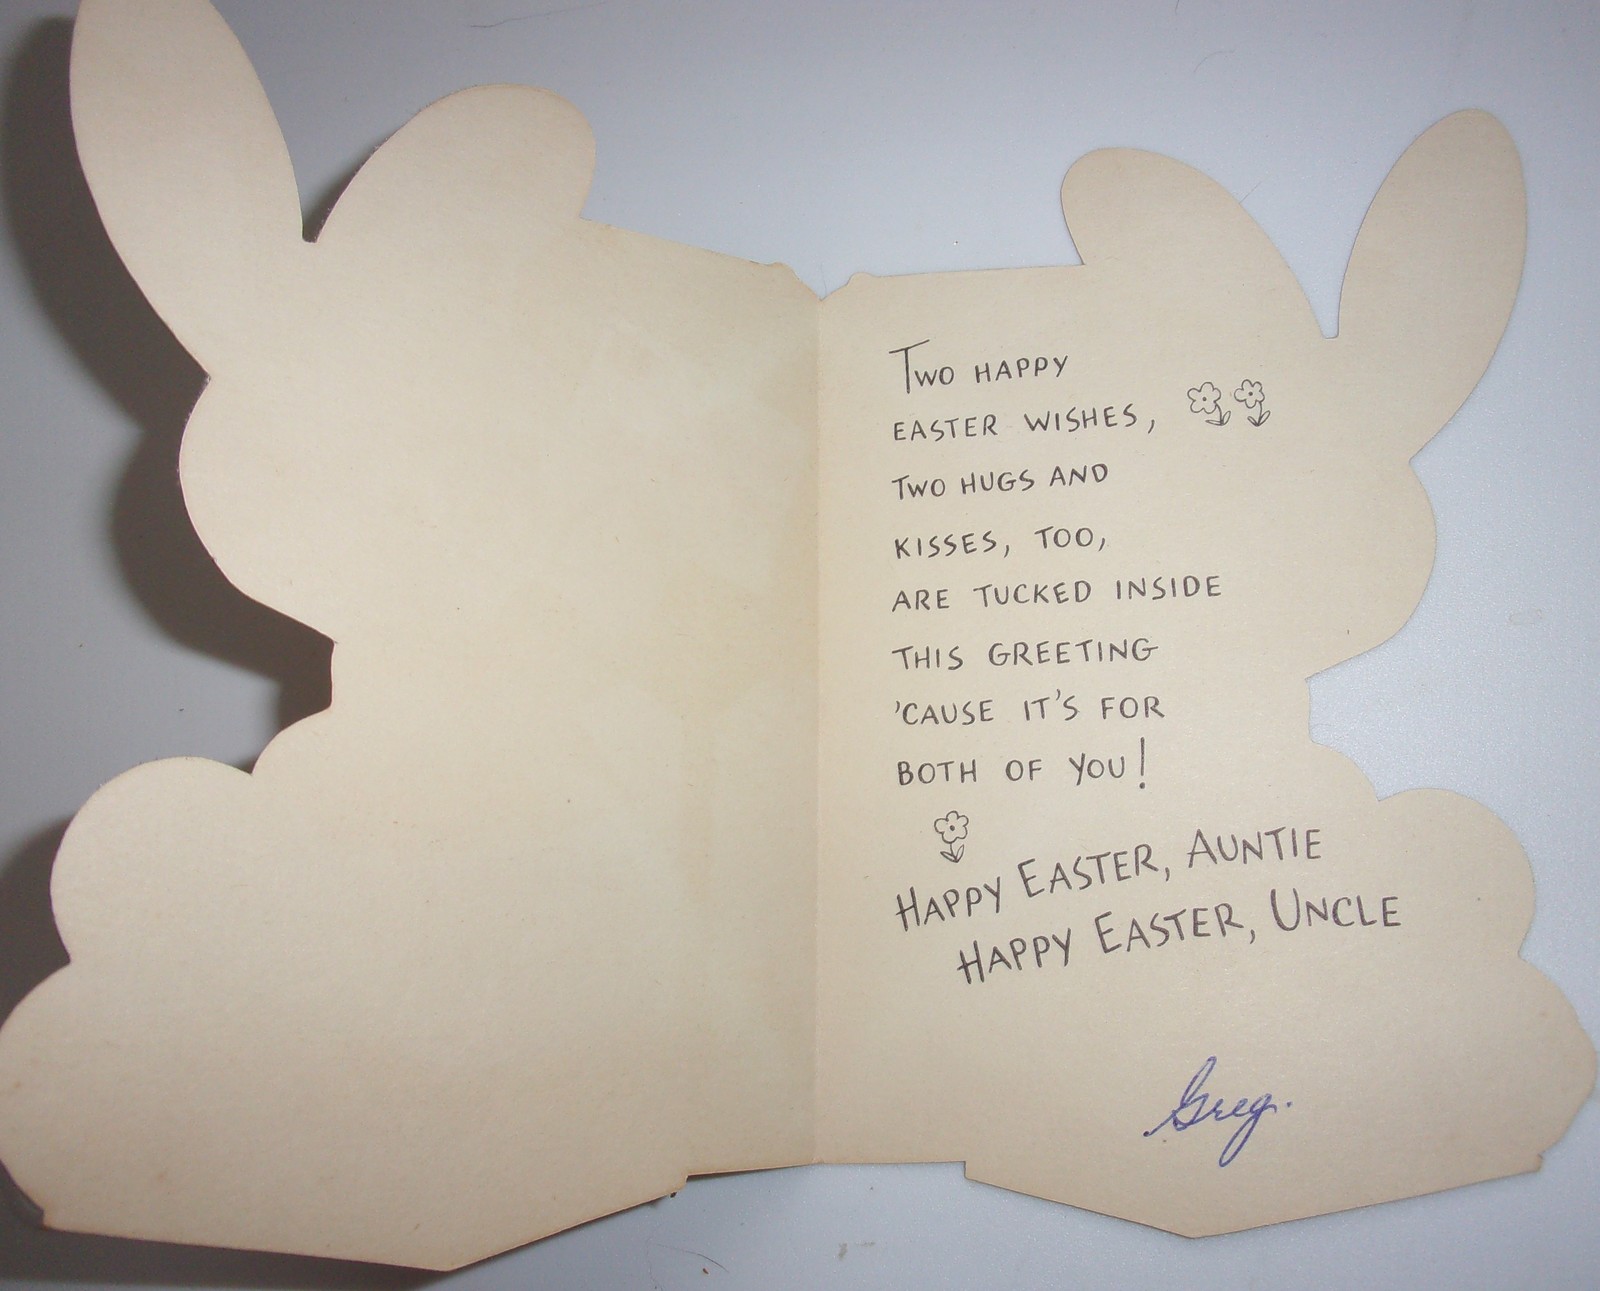 TWO HAPPY
EASTER WISHES,
TWO HUGS AND
KISSES, TOO,
ARE TUCKED INSIDE
THIS GREETING
'CAUSE IT'S FOR
BOTH OF YOU!
HAPPY EASTER, AUNTIE
HAPPY EASTER, UNCLE
Greg.